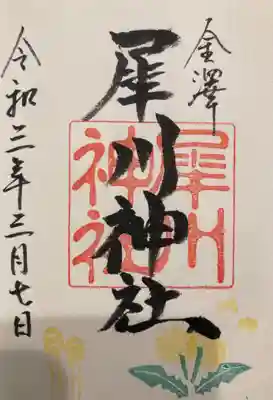 金澤
犀川神社
犀川
神社
令和二年三月七日